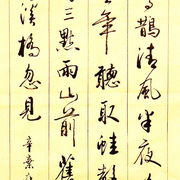 鵲清風半夜
年聽取蛙聲
三點雨山前舊
溪橋忽見
辛棄